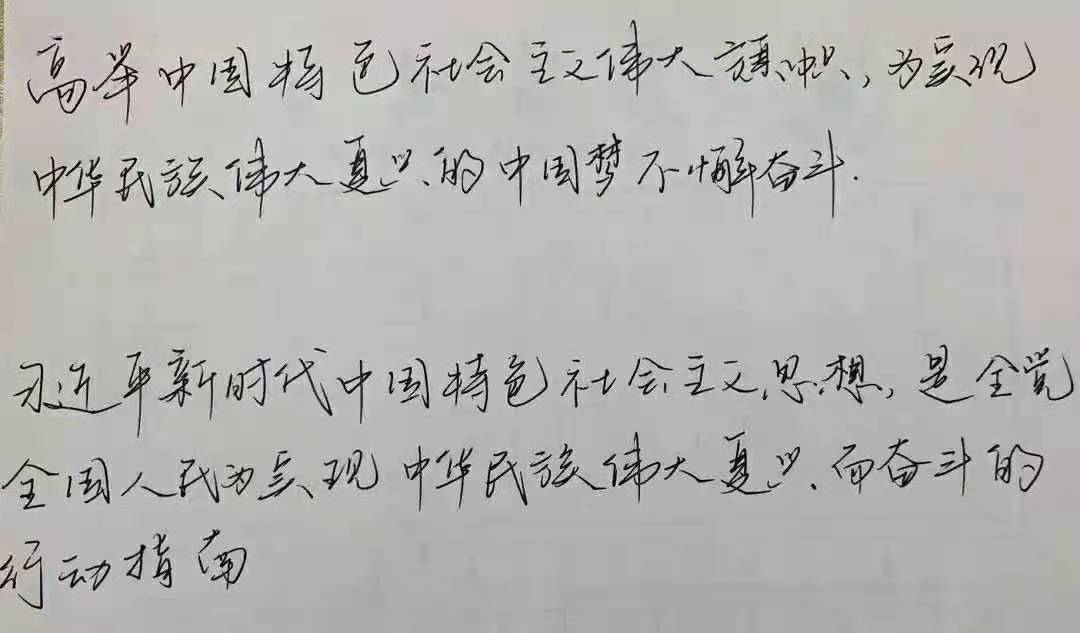 高举中国特色社会主义伟大旗帜,为实现
中华民族伟大复兴的中国梦不懈奋斗.
习近平新时代中国特色社会主义思想,是全党
全国人民为实现中华民族伟大复兴而奋斗的
行动指南